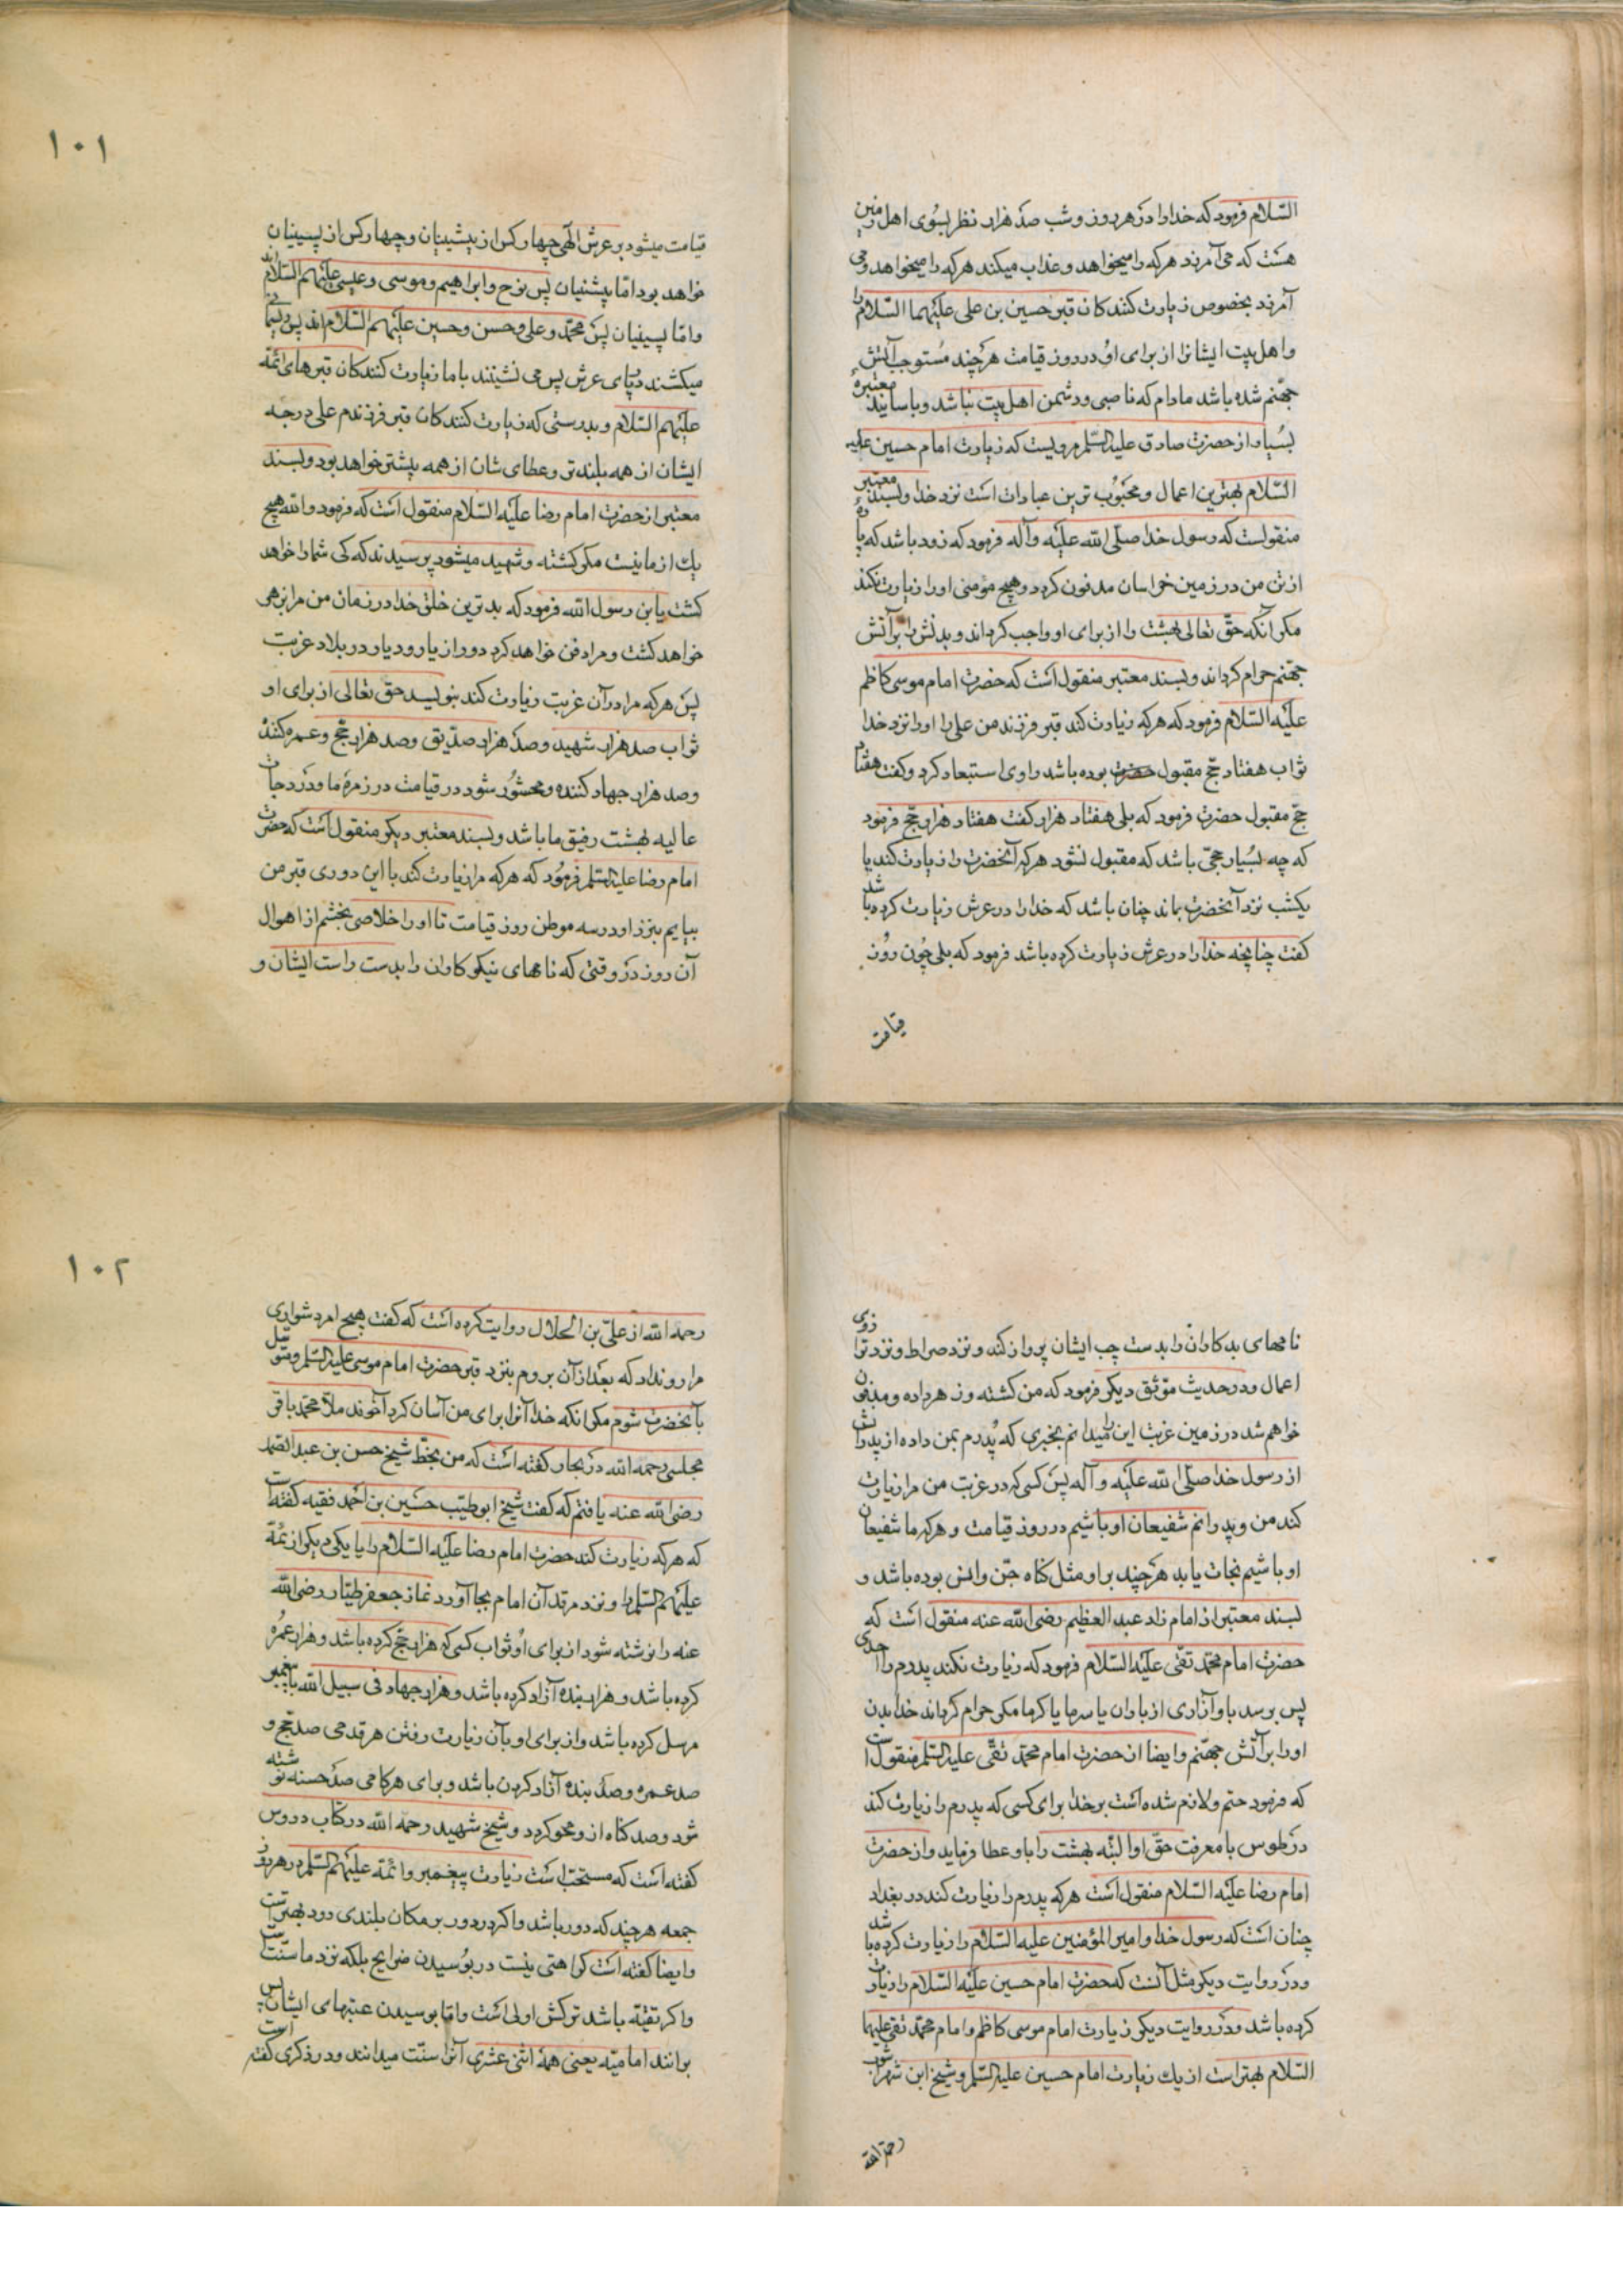 السّلام فرمود که خدا را در هر روز و شب صد هزار نظر بسوی اهل زمین
هست که می آمرزد هرکه را میخواهد و عذاب میکند هرکه را میخواهد و می
آمرزد بخصوص زیارت کنندکان قبر حسین بن علی علیهما السّلام را
و اهل بیت ایشانرا از برای او در روز قیامت هرچند مستوجب آتش
جهنّم شده باشد مادام که ناصبی و دشمن اهل بیت نباشد و باسانید معتبرهٔ
بسیار از حضرت صادق علیه السّلم مرویست که زیارت امام حسین علیه
السّلام بهترین اعمال و محبوب ترین عبادات است نزد خدا و بسند معتبر
منقولست که رسول خدا صلّی الله علیه وآله فرمود که زود باشد که پارهٔ
از تن من در زمین خراسان مدفون کردد و هیچ مؤمنی او را زیارت نکند
مکر آنکه حقّ تعالی بهشت را از برای او واجب کرداند و بدنش را بر آتش
جهنّم حرام کرداند و بسند معتبر منقول است که حضرت امام موسی کاظم
علیه السّلام فرمود که هرکه زیارت کند قبر فرزند من علی را او را نزد خدا
ثواب هفتاد حجّ مقبول بوده باشد راوی استبعاد کرد و کفت هفتاد
حجّ مقبول حضرت فرمود که بلی هفتاد هزار کفت هفتاد هزار حجّ فرمود
که چه بسیار حجّی باشد که مقبول نشود هرکه آنحضرت را زیارت کند یا
یکشب نزد آنحضرت بماند چنان باشد که خدا را در عرش زیارت کرده باشد
کفت چنانچه خدا را در عرش زیارت کرده باشد فرمود که بلی چون روز
قیامت
١٠١
قیامت میشود بر عرش الهی چهار کس از پیشینیان و چهار کس از پسینیان
خواهد بود امّا پیشنیان پس نوح و ابراهیم و موسی و عیسی علیهم السّلام اند
و امّا پسینیان پس محمّد و علی و حسن و حسین علیهم السّلام اند پس ریسمانی
میکشند در پای عرش پس می نشینند با ما زیارت کنندکان قبرهای ائمّه
علیهم السّلام و بدرستی که زیارت کنندکان قبر فرزندم علی درجه
ایشان از همه بلندتر و عطای شان از همه بیشتر خواهد بود و بسند
معتبر از حضرت امام رضا علیه السّلام منقول است که فرمود والله هیچ
یک از ما نیست مکر کشته و شهید میشود پرسیدند که کی شما را خواهد
کشت یابن رسول الله فرمود که بدترین خلق خدا در زمان من مرا بزهر
خواهد کشت و مرا دفن خواهد کرد دور از یار و دیار در بلاد غربت
پس هرکه مرا در آن غربت زیارت کند بنویسد حق تعالی از برای او
ثواب صد هزار شهید و صد هزار صدّیق و صد هزار حجّ و عمره کننده
و صد هزار جهاد کننده و محشور شود در قیامت در زمرهٔ ما و در درجات
عالیه بهشت رفیق ما باشد و بسند معتبر دیکر منقول است که حضرت
امام رضا علیه السّلم فرمود که هرکه مرا زیارت کند با این دوری قبر من
بیایم بنزد او در سه موطن روز قیامت تا او را خلاصی بخشم از اهوال
آن روز در وقتی که نامهای نیکوکاران را بدست راست ایشان و
نامهای بدکاران را بدست چپ ایشان پرواز کند و نزد صراط و نزد ترازوی
اعمال و در حدیث موثّق دیکر فرمود که من کشته و زهر داده و مدفون
خواهم شد در زمین غربت این را میدانم بخبری که پدرم بمن داده از پدرانش
از رسول خدا صلّی الله علیه وآله پس کسی که در غربت من مرا زیارت
کند من و پدرانم شفیعان او باشیم در روز قیامت و هرکه ما شفیعان
او باشیم نجات یابد هرچند بر او مثل کناه جنّ و انس بوده باشد و
بسند معتبر از امام زاد عبد العظیم رضی الله عنه منقول است که
حضرت امام محمّد تقی علیه السّلام فرمود که زیارت نکند پدرم را احدی
پس برسد باو آزاری از باران یا سرما یا کرما مکر حرام کرداند خدا بدن
او را بر آتش جهنّم و ایضا از حضرت امام محمّد تقی علیه السّلم منقول است
که فرمود حتم و لازم شده است بر خدا برای کسی که پدرم را زیارت کند
در طوس با معرفت حقّ او البتّه بهشت را باو عطا فرماید و از حضرت
امام رضا علیه السّلام منقول است هرکه پدرم را زیارت کند در بغداد
چنان است که رسول خدا و امیر المؤمنین علیه السّلام را زیارت کرده باشد
و در روایت دیکر مثل آنست که حضرت امام حسین علیه السّلام را زیارت
کرده باشد و در روایت دیکر زیارت امام موسی کاظم و امام محمّد تقی علیهما
السّلام بهتر است از یک زیارت امام حسین علیه السّلم و شیخ ابن شهرآشوب
رحمة الله
١٠٢
رحمه الله از علی بن الخلال روایت کرده است که کفت هیچ امر دشواری
مرا رو نداد که بعد از آن بروم بنزد قبر حضرت امام موسی علیه السّلم و متوسّل
بآنحضرت شوم مکر انکه خدا آنرا برای من آسان کرد آخوند ملّا محمّد باقر
مجلسی رحمه الله در بحار کفته است که من بخطّ شیخ حسن بن عبد الصّمد
رضی الله عنه یافتم که کفت شیخ ابو طیّب حسین بن احمد فقیه کفته است
که هرکه زیارت کند حضرت امام رضا علیه السّلام را یا یکی دیکر از ائمّهٔ
علیهم السّلم را و نزد مرقد آن امام بجا آورد نماز جعفر طیّار رضی الله
عنه را نوشته شود از برای او ثواب کسی که هزار حجّ کرده باشد و هزار عمره
کرده باشد و هزار بنده آزاد کرده باشد و هزار جهاد فی سبیل الله با پیغمبر
مرسل کرده باشد و از برای او بآن زیارت رفتن هر قدمی صد حجّ و
صد عمره و صد بنده آزاد کردن باشد و برای هر کامی صد حسنه نوشته
شود و صد کناه از و محو کردد و شیخ شهید رحمه الله در کتاب دروس
کفته است که مستحبّ است زیارت پیغمبر و ائمّه علیهم السّلم در هر روز
جمعه هرچند که دور باشد و اکر در دور بر مکان بلندی رود بهتر است
و ایضا کفته است کراهتی نیست در بوسیدن ضرایح بلکه نزد ما سنّت است
و اکر تقیّه باشد ترکش اولی است و امّا بوسیدن عتبهای ایشان پس
بدانند امامیّه یعنی همهٔ اثنی عشری آنرا سنّت میدانند و در ذکری کفته است